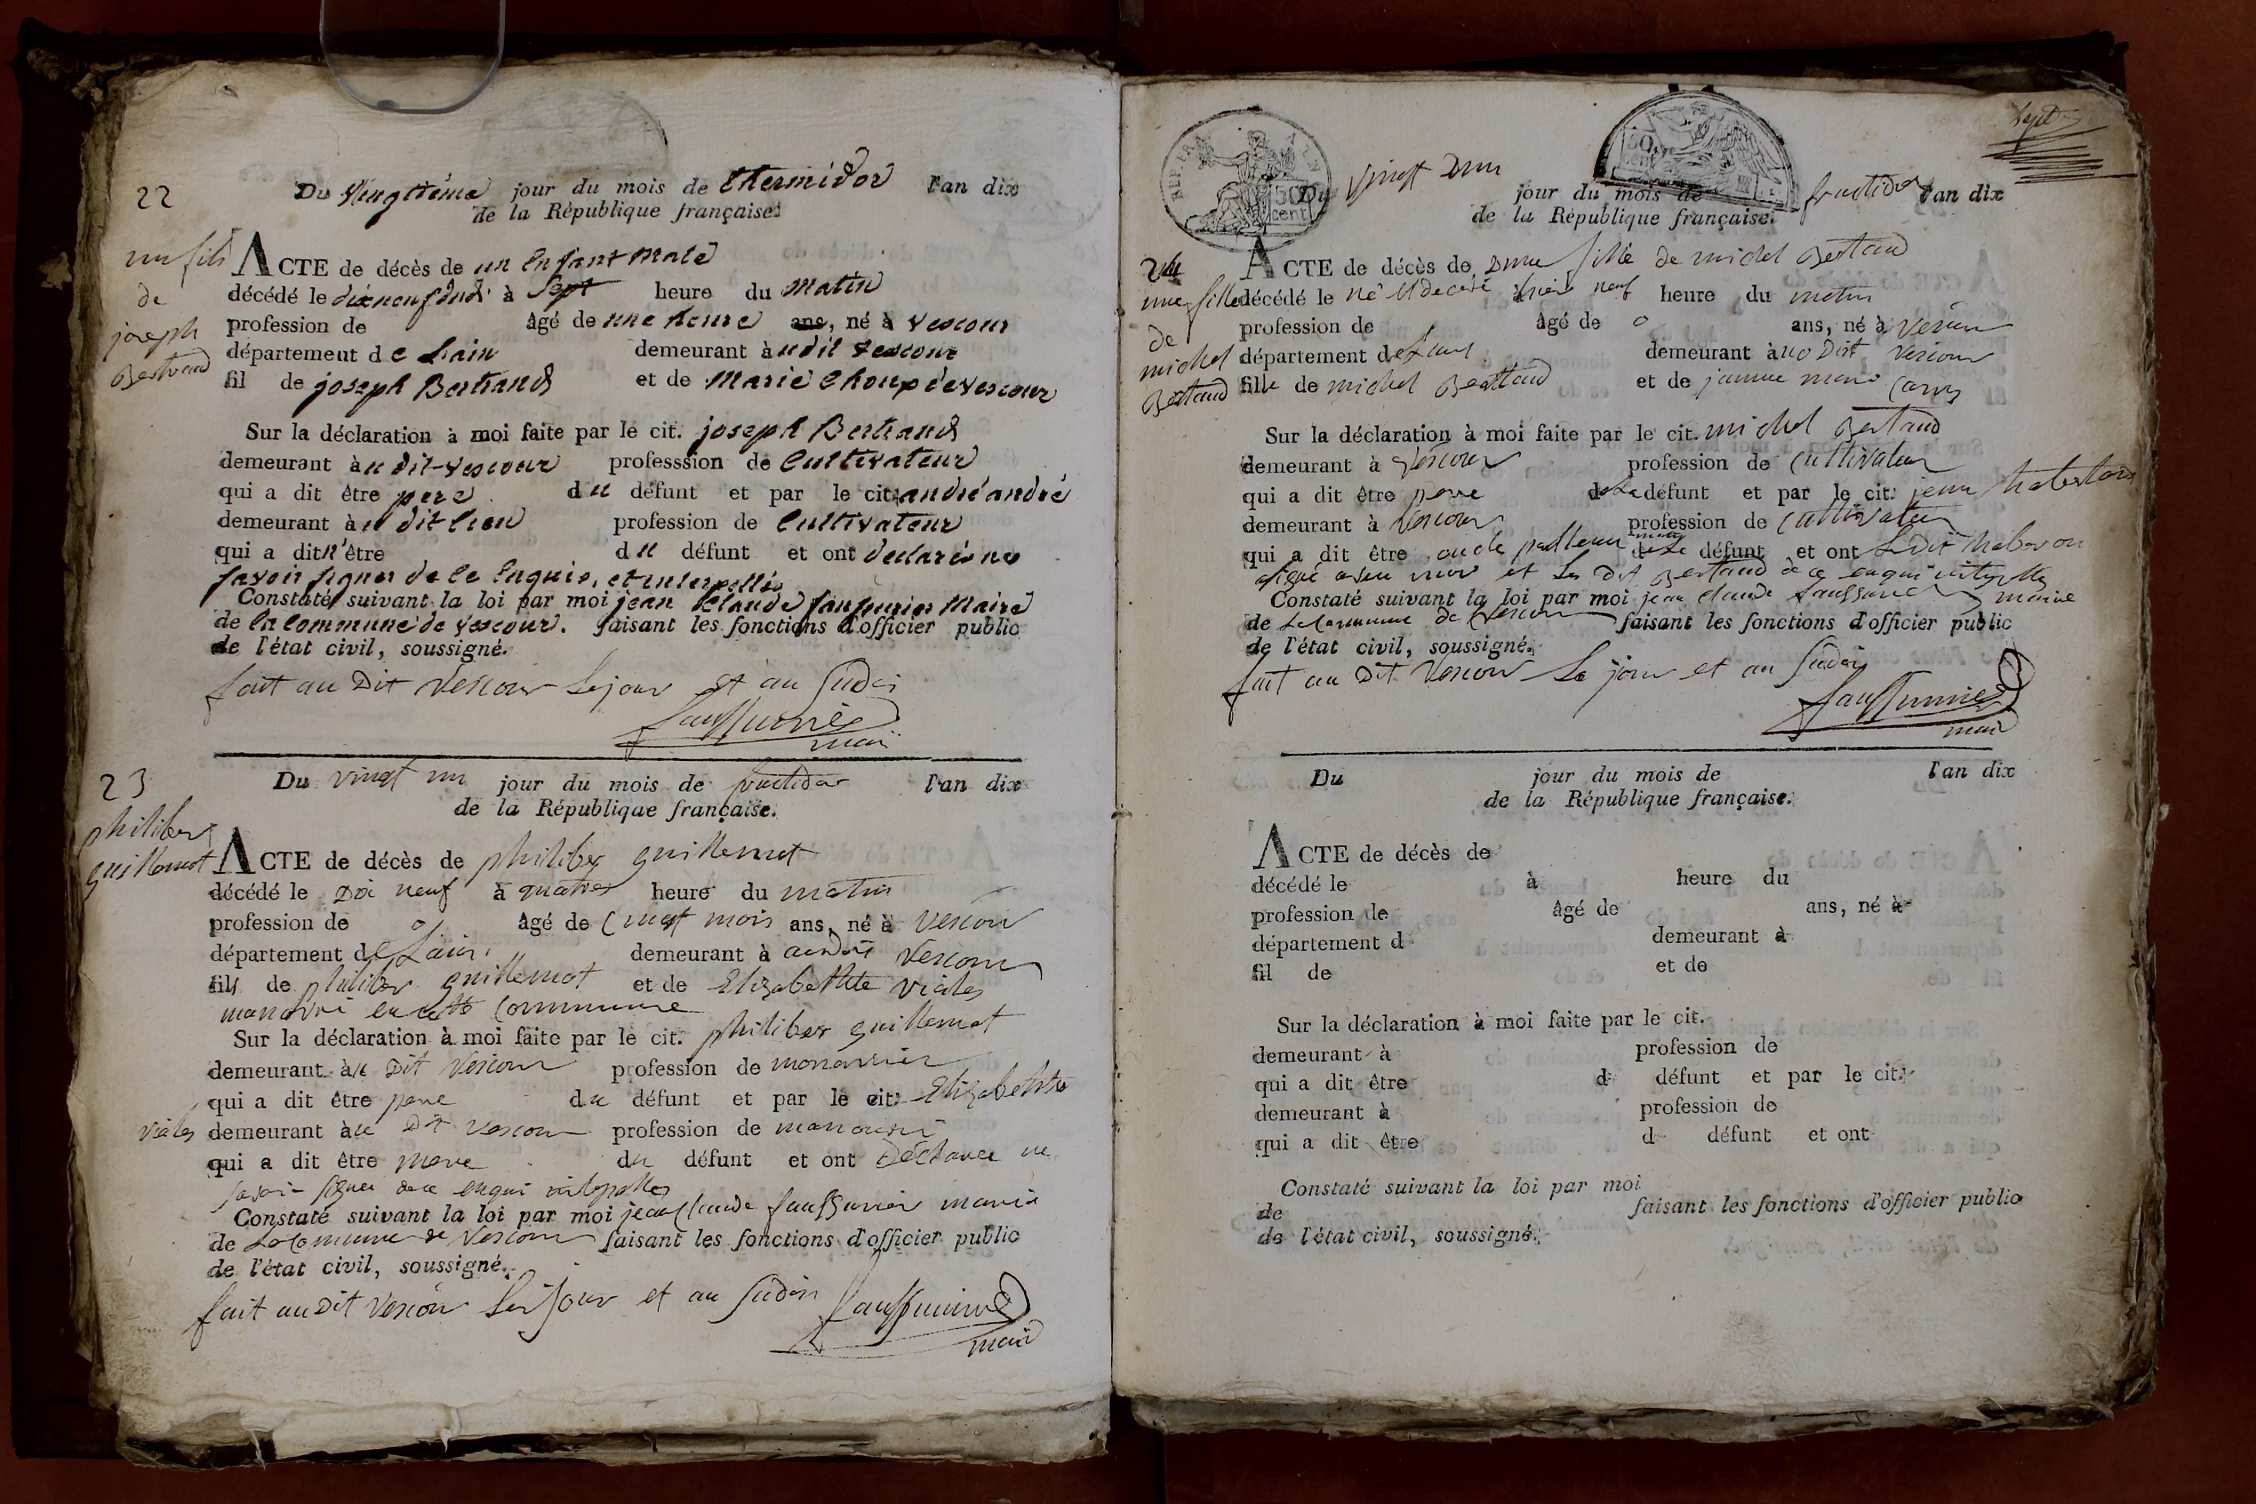 22
Du Vingtième jour du mois de thermidor l'an dix
de la République française.
un fils
de
joseph
Bertrand
ACTE de décès de un Enfant Male
décédé le dixneuf dudi à Sept heure du Matin
profession de âgé de une heure ans, né à vescour
département de Lain demeurant audit vescour
fil de joseph Bertrand et de Marie Choup de vescour
Sur la déclaration à moi faite par le cit. joseph Bertrand
demeurant au dit-vescour professsion de Cultivateur
qui a dit être pere du défunt et par le cit. andré andré
demeurant au dit lieu profession de Cultivateur
qui a dit n'être du défunt et ont declaré ne
savoir signer de ce Enquis, et interpellés
Constaté suivant la loi par moi jean Claude Maire
de la commune de vescour. faisant les fonctions d'officier public
de l'état civil, soussigné.
fait au Dit Vescour Le jour et an Sudi
mair
23
Du vingt un jour du mois de fructidor l'an dix
de la République française.
philiber
guillemot
ACTE de décès de philiber guillemot
décédé le Dix neuf à quatre heure du matin
profession de 0 âgé de Cinqt mois ans, né à Vescour
département de Lain demeurant à audit Vescour
fils de philiber guillemot et de Elizabethte viales
en cette Commune
Sur la déclaration à moi faite par le cit. philiber guillemot
demeurant au Dit Vescour profession de
qui a dit être pere du défunt et par le cit. Elizabethte
viales demeurant au Dit vescour profession de
qui a dit être mere du défunt et ont Déclaree ne
savoir signer de ce enqui
Constaté suivant la loi par moi jean Claude maire
de La Commune de Vescour faisant les fonctions d'officier public
de l'état civil, soussigné.
fait au Dit Vescour Le jour et an Sudi
mair
Sept
50 cent
50 cent
Du vingt Dun jour du mois de fructidor l'an dix
de la République française.
24
une fille
de
michel
Bertaud
ACTE de décès de Dune fille de michel Bertaud
décédé le né Et decedé neuf heure du matin
profession de âgé de 0 ans, né à Vescour
département de demeurant au Dit Vescour
fille de michel Bertaud et de janne marie
Sur la déclaration à moi faite par le cit. michel Bertaud
demeurant à Vescour profession de Cultivateur
qui a dit être pere de La défunt et par le cit. jean
demeurant à Vescour profession de Cultivateur
qui a dit être oncle de La défunt et ont Le Dit
signé et Le Dit Bertaud de ce enqui
Constaté suivant la loi par moi jean claude maire
de La Commune de Vescour faisant les fonctions d'officier public
de l'état civil, soussigné.
fait au Dit Vescour Le jour et an Sudi
mair
Du jour du mois de l'an dix
de la République française.
ACTE de décès de
décédé le à heure du
profession de âgé de ans, né à
département d demeurant à
fil de et de
Sur la déclaration à moi faite par le cit.
demeurant à profession de
qui a dit être d défunt et par le cit.
demeurant à profession de
qui a dit être d défunt et ont
Constaté suivant la loi par moi
de faisant les fonctions d'officier public
de l'état civil, soussigné.